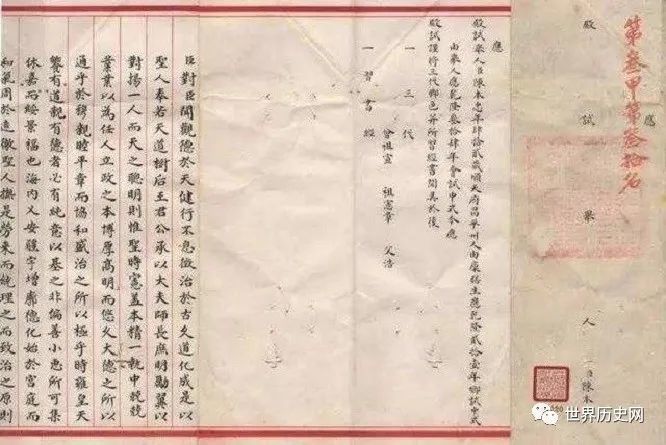 第叁甲第叁拾名
應
殿試舉人臣陳本
應
殿試舉人臣陳本忠年肆拾貳歲順天府昌平州人由廩膳生應乾隆貳拾壹年鄉試中式
由舉人應乾隆叁拾肆年會試中式今應
殿試謹將三代脚色并所習經書開具於後
一三代
曾祖宣 祖憲章 父浩
一習書經
臣對臣聞觀德於天健行不息徵治於古久道化成是以
聖人奉若天道樹后王君公承以大夫師長庶明勵翼以
對揚一人而天之聰明則惟聖時憲蓋本精一執中兢兢
業業以為任人立政之本博厚高明而悠久大德之所以
通乎於穆親睦平章而協和咸治之所以極乎時雍皇天
無有道親有德者必有純意以基之非偏善小惠所可集
休嘉而綏景福也海内乂安職守增肅德化始於宮庭而
和氣周於遠徼聖人撫是勞來而統理之而致治之原則
世界历史网